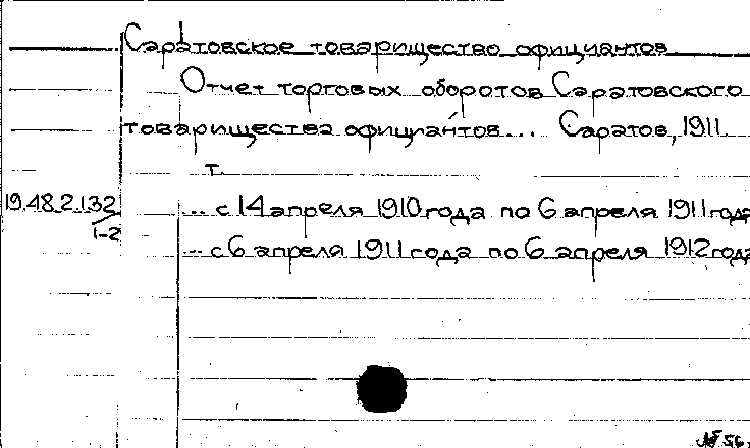 Саратовское товарищество официантов
Отчет торговых оборотов Саратовского
товарищества официантов... Саратов, 1911
т.
19.48.2.132 ... с 14 апреля 1910 года по 6 апреля 1911 года
1-2 ... с 6 апреля 1911 года по 6 апреля 1912 года